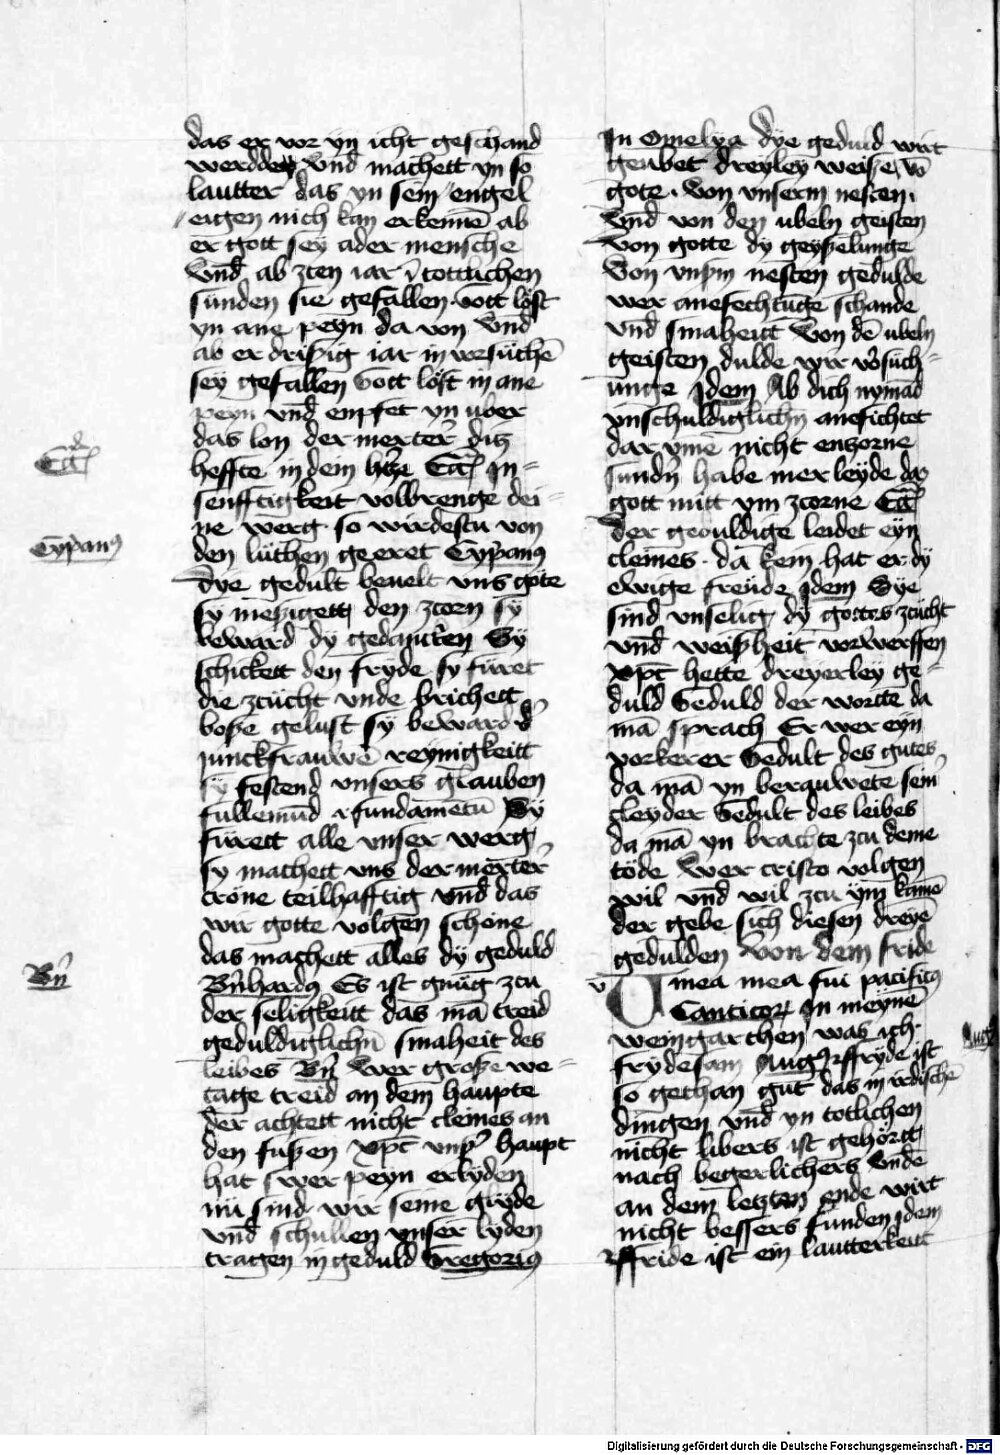 das er vor yn icht geschand
werdden Vnd machett yn so
lautter das yn sem engel
eigen nich kan erkennē ab
er gott sey ader mensche
Vnd ab zcen iar ī tottlichen
sunden sie gefallen Gott lost
yn ane peyn da von Vnd
ab er drißig iar in vorsuchē
sey gefallen Gott löst in ane
peyn vnd enpfet yn vber
das lon der merter diß
heffte in dein hertze Ecc In-
senfftigkeit volbrenge dei-
ne werg so wirdestu von
den lüthen geeret Cyprianus
Dye gedult beuelt vns gote
sy mesigett den zcorn sy
beward dy Sy
schickett den fryde sy füret
die zcücht vnde brichett
boße gelust sy beward d'
junckfrauwē reynigkeitt
sy festend vnsers glauben
fullemūd fundametū Sy
fürett alle vnser werg
sy machett vns der merter
crone teilhafftig vnd das
wir gotte volgen schone
das machett alles dy geduld
Bn̄hardus Es ist gnüg zcu
der seligkeitt das mā treid
geduldiglichn̄ smaheit des
leibes Bn̄ Wer große we-
tage treid an dem haupte
der achtett nicht cleines an
den fußen Xpc vnß' haupt
hat swer peyn erlyden
nü sind wir seine glyde
vnd schullen vnser lyden
tragen in geduld Gregorius
Ecc
Cyprianus
Bn̄
In Omelya dye geduld wirt
geubet dreyley weise vō
gote von vnserm nesten
Vnd von den vbeln geisten
Von gotte dy geyßelunge
Von vnßm nesten gedulde
wer anefechtuge schande
vnd smaheitt Von dē vbeln
geisten dulde wir vorsuch-
unge Idem Ab dich nymād
vnschuldiglichn̄ anefichtet
dar vmē nicht enzorne
sundn̄ habe mer leyde das
gott mitt ym zcorne Ecc
Der geduldige leidet eyn
cleines da kem hat er dy
ewige freude Idem Dye
sind vnselig dy gottes zcücht
vnd weißheit vorwerffen
Xpc hette dreyerley ge-
duld Geduld der wortte da
mā sprach Er wer eyn
vorkerer Gedult des gutes
da mā yn berauwete sein'
cleyder Gedult des leibes
da mā yn brachte zcu deme
tode Wer cristo volgen
wil vnd wil zcu ym kamē
der gebe sich diesen dreyē
gedulden Von dem fride
Vinea mea fui pacificus
Canticor In meynē
weingarthen was ich
frydesam Augus ffryde ist
so gethan gut das in irdischē
dingen vnd yn totlichen
nicht libers ist gehortt
nach begerlichers Vnde
an dem letzten ende wirt
nicht bessers funden Idem
ffride ist ein lautterkeitt
Aug
Digitalisierung gefördert durch die Deutsche Forschungsgemeinschaft - DFG